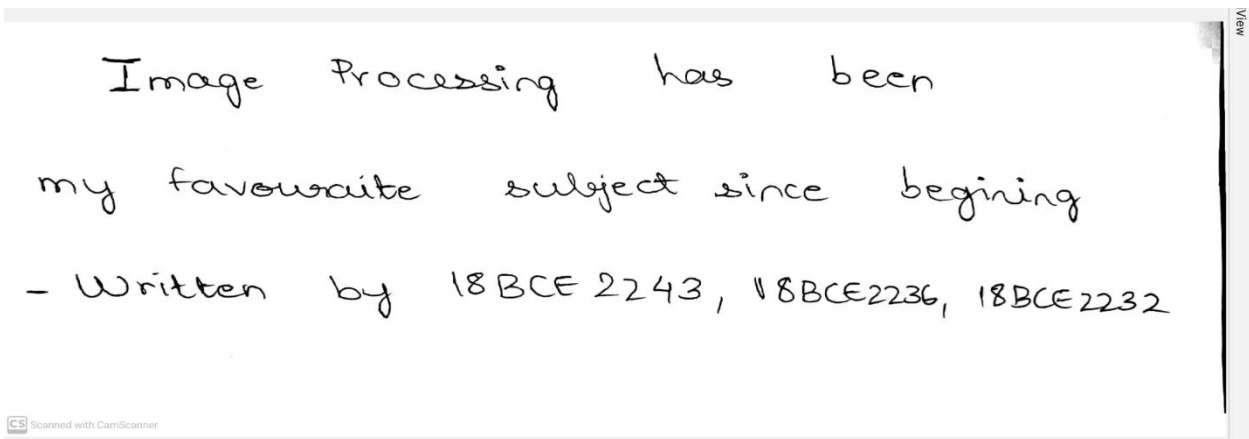 Image Processing has been
my favouraite subject since begining
- Written by 18BCE2243, 18BCE2236, 18BCE2232
CS Scanned with CamScanner
View